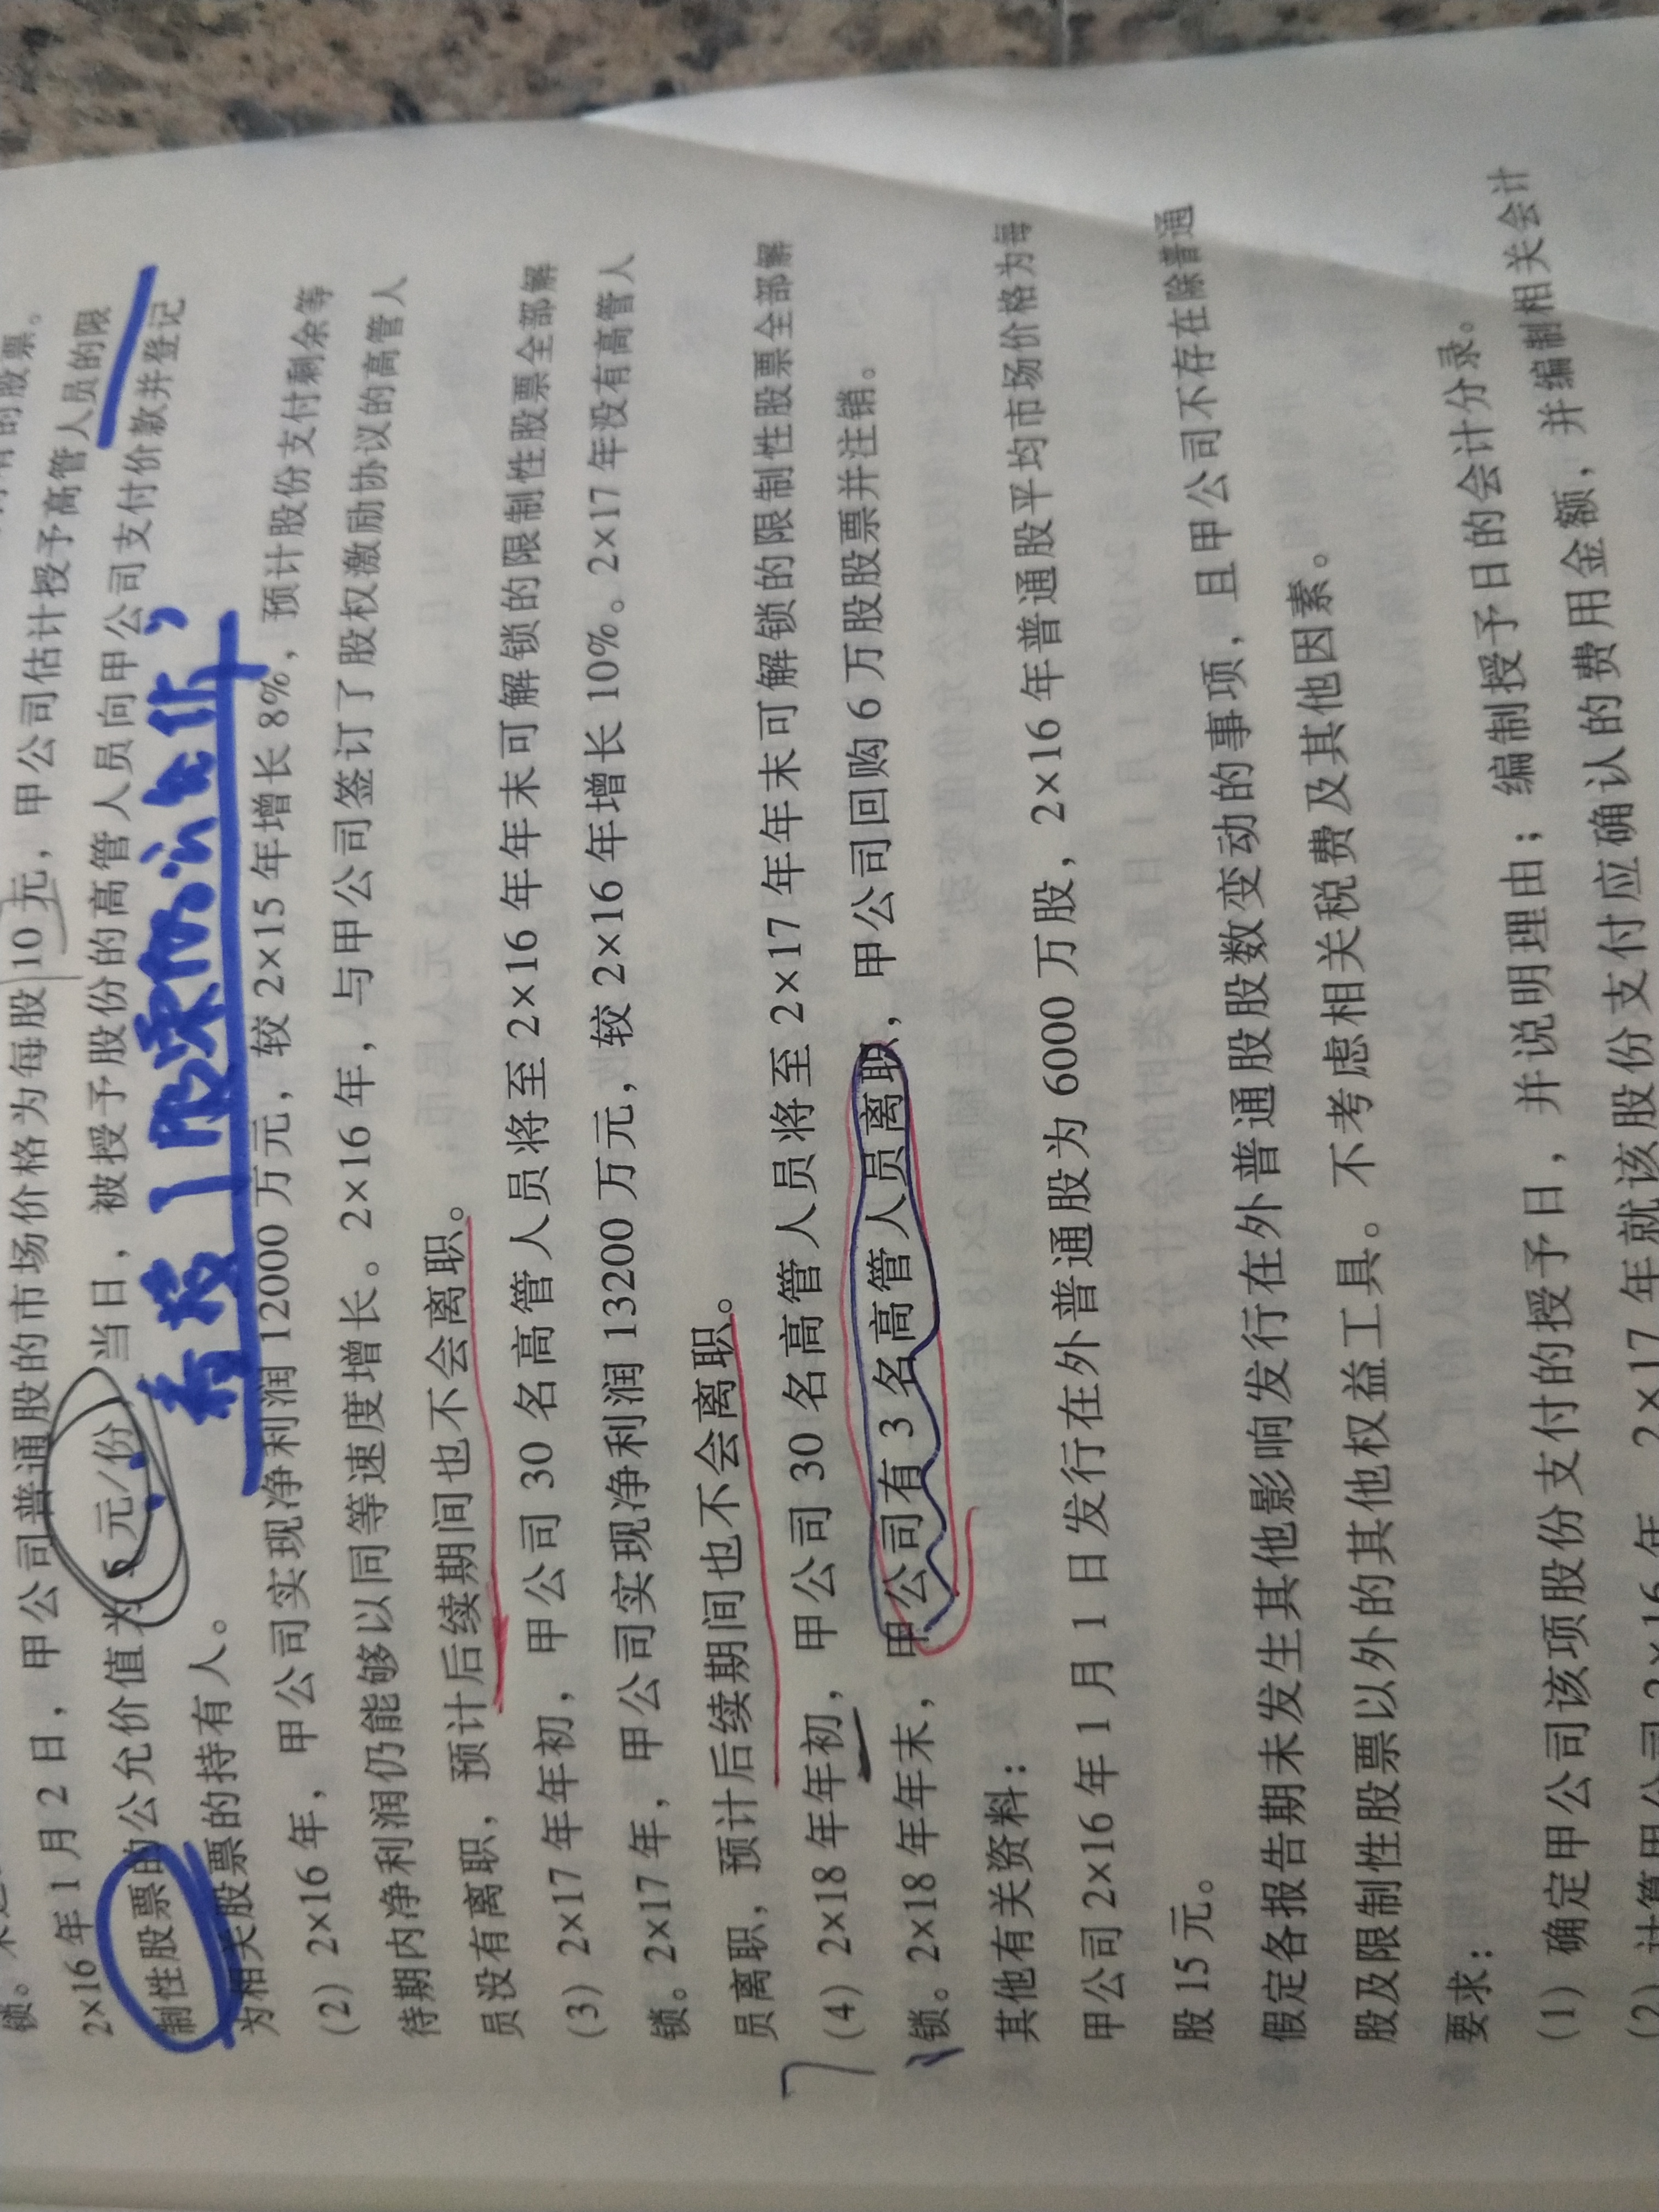 锁。
2×16年1月2日，甲公司普通股的市场价格为每股10元，甲公司估计授予高管人员的限
制性股票的公允价值为5元/份，当日，被授予股份的高管人员向甲公司支付价款并登记
为相关股票的持有人。
（2）2×16年，甲公司实现净利润12000万元，较2×15年增长8%，预计股份支付剩余等
待期内净利润仍能够以同等速度增长。2×16年，与甲公司签订了股权激励协议的高管人
员没有离职，预计后续期间也不会离职。
（3）2×17年年初，甲公司30名高管人员将至2×16年年末可解锁的限制性股票全部解
锁。2×17年，甲公司实现净利润13200万元，较2×16年增长10%。2×17年没有高管人
员离职，预计后续期间也不会离职。
（4）2×18年年初，甲公司30名高管人员将至2×17年年末可解锁的限制性股票全部解
锁。2×18年年末，甲公司有3名高管人员离职，甲公司回购6万股股票并注销。
其他有关资料：
甲公司2×16年1月1日发行在外普通股为6000万股，2×16年普通股平均市场价格为每
股15元。
假定各报告期未发生其他影响发行在外普通股股数变动的事项，且甲公司不存在除普通
股及限制性股票以外的其他权益工具。不考虑相关税费及其他因素。
要求：
（1）确定甲公司该项股份支付的授予日，并说明理由；编制授予日的会计分录。
（2）计算甲公司2×16年、2×17年就该股份支付应确认的费用金额，并编制相关会计